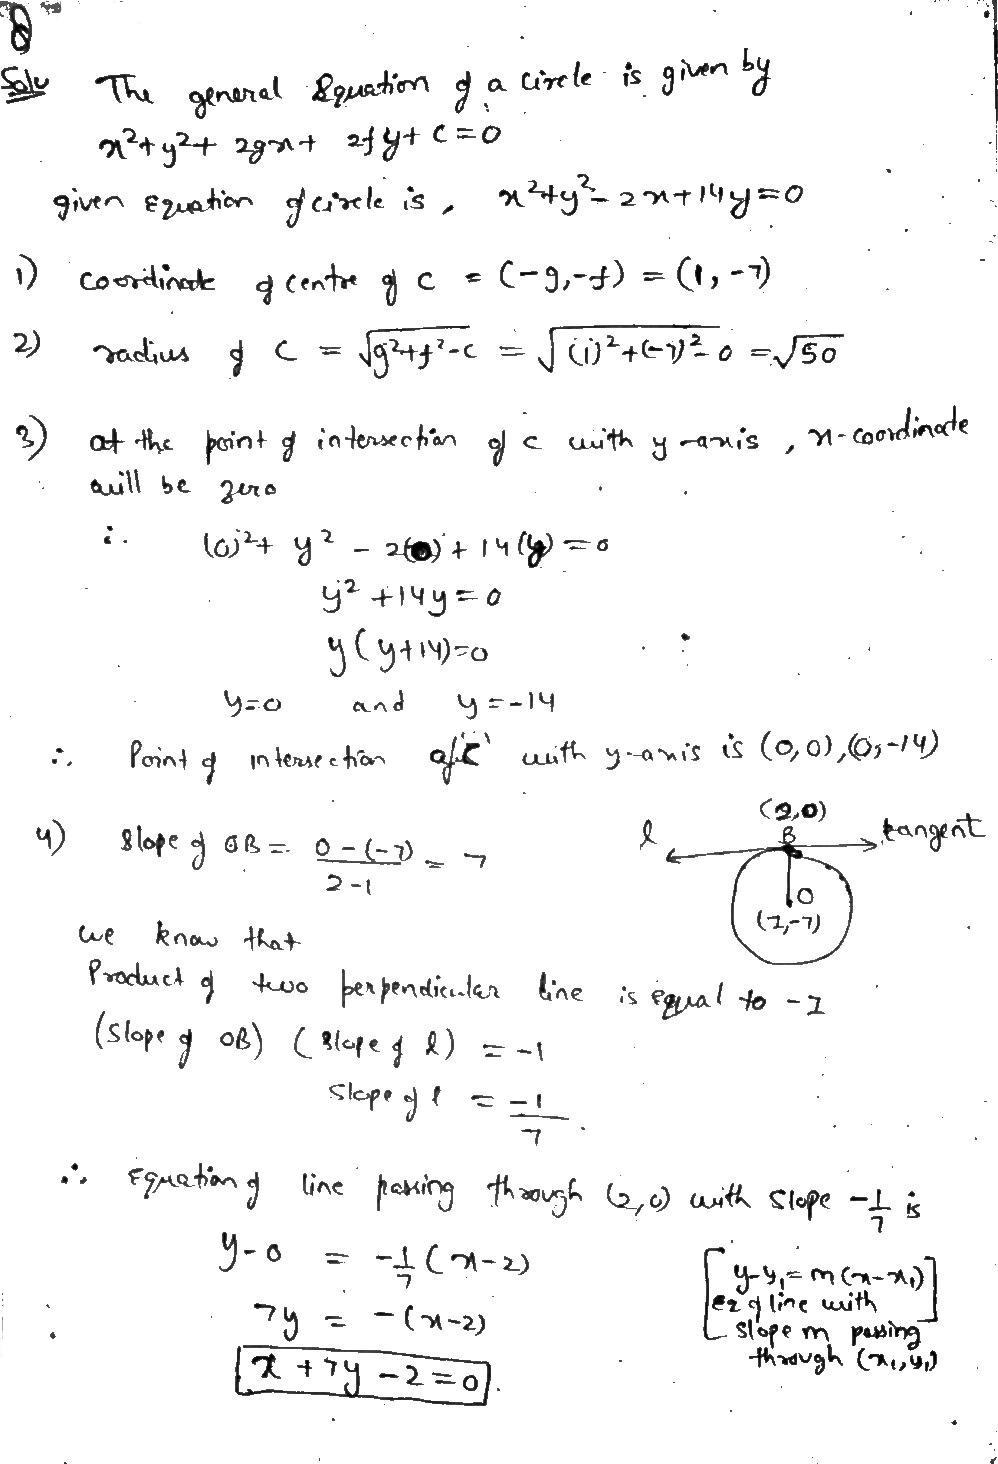 8
Solu The general Equation of a circle is given by
x²+y²+ 2gx+ 2fy+ c=0
given Equation of circle is, x²+y²-2x+14y=0
1) coordinate of centre of C = (-g,-f) = (1, -7)
2) radius of C = √g²+f²-c = √(1)²+(-7)²-0 = √50
3) at the point of intersection of c with y-axis, x-coordinate
will be zero
∴ (0)²+ y² - 2(0)+ 14(y) = 0
y² +14y=0
y(y+14)=0
y=0 and y=-14
∴ Point of intersection of 'C' with y-axis is (0,0),(0,-14)
4) Slope of OB = 0-(-7)/2-1 = 7
(2,0)
B
l tangent
O
(1,-7)
we know that
Product of two perpendicular line is equal to -1
(Slope of OB) (slope of l) = -1
Slope of l = -1/7
∴ Equation of line passing through (2,0) with slope -1/7 is
y-0 = -1/7 (x-2)
7y = -(x-2)
x +7y -2=0
[y-y₁=m(x-x₁)]
Eq of line with
slope m passing
through (x₁,y₁)